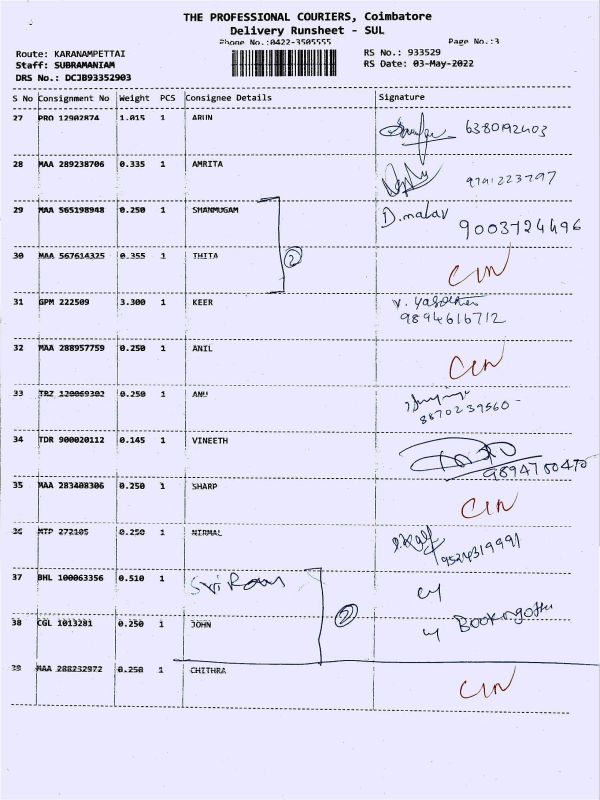 THE PROFESSIONAL COURIERS, Coimbatore
Delivery Runsheet - SUL
Phone No.:0422-3505555
Page No.:3
Route: KARANAMPETTAI
RS No.: 933529
Staff: SUBRAMANIAM
RS Date: 03-May-2022
DRS No.: DCJB93352903
S No Consignment No Weight PCS Consignee Details Signature
27 PRO 12902874 1.015 1 ARUN 6380192403
28 MAA 289238706 0.335 1 AMRITA 9791223797
29 MAA 565198948 0.250 1 SHANMUGAM D.malar 9003724496
30 MAA 567614325 0.355 1 THITA CIN
2
31 GPM 222509 3.300 1 KEER
9894616712
32 MAA 288957759 0.250 1 ANIL CIN
33 TRZ 120069302 0.250 1 ANU
8870239560-
34 TDR 900020112 0.145 1 VINEETH
9894780470
35 MAA 283408306 0.250 1 SHARP CIN
36 MTP 272105 0.250 1 NIRMAL
9524319991
37 BHL 100063356 0.510 1 Sri Ram
38 CGL 1013281 0.250 1 JOHN
2
39 MAA 288232972 0.250 1 CHITHRA CIN